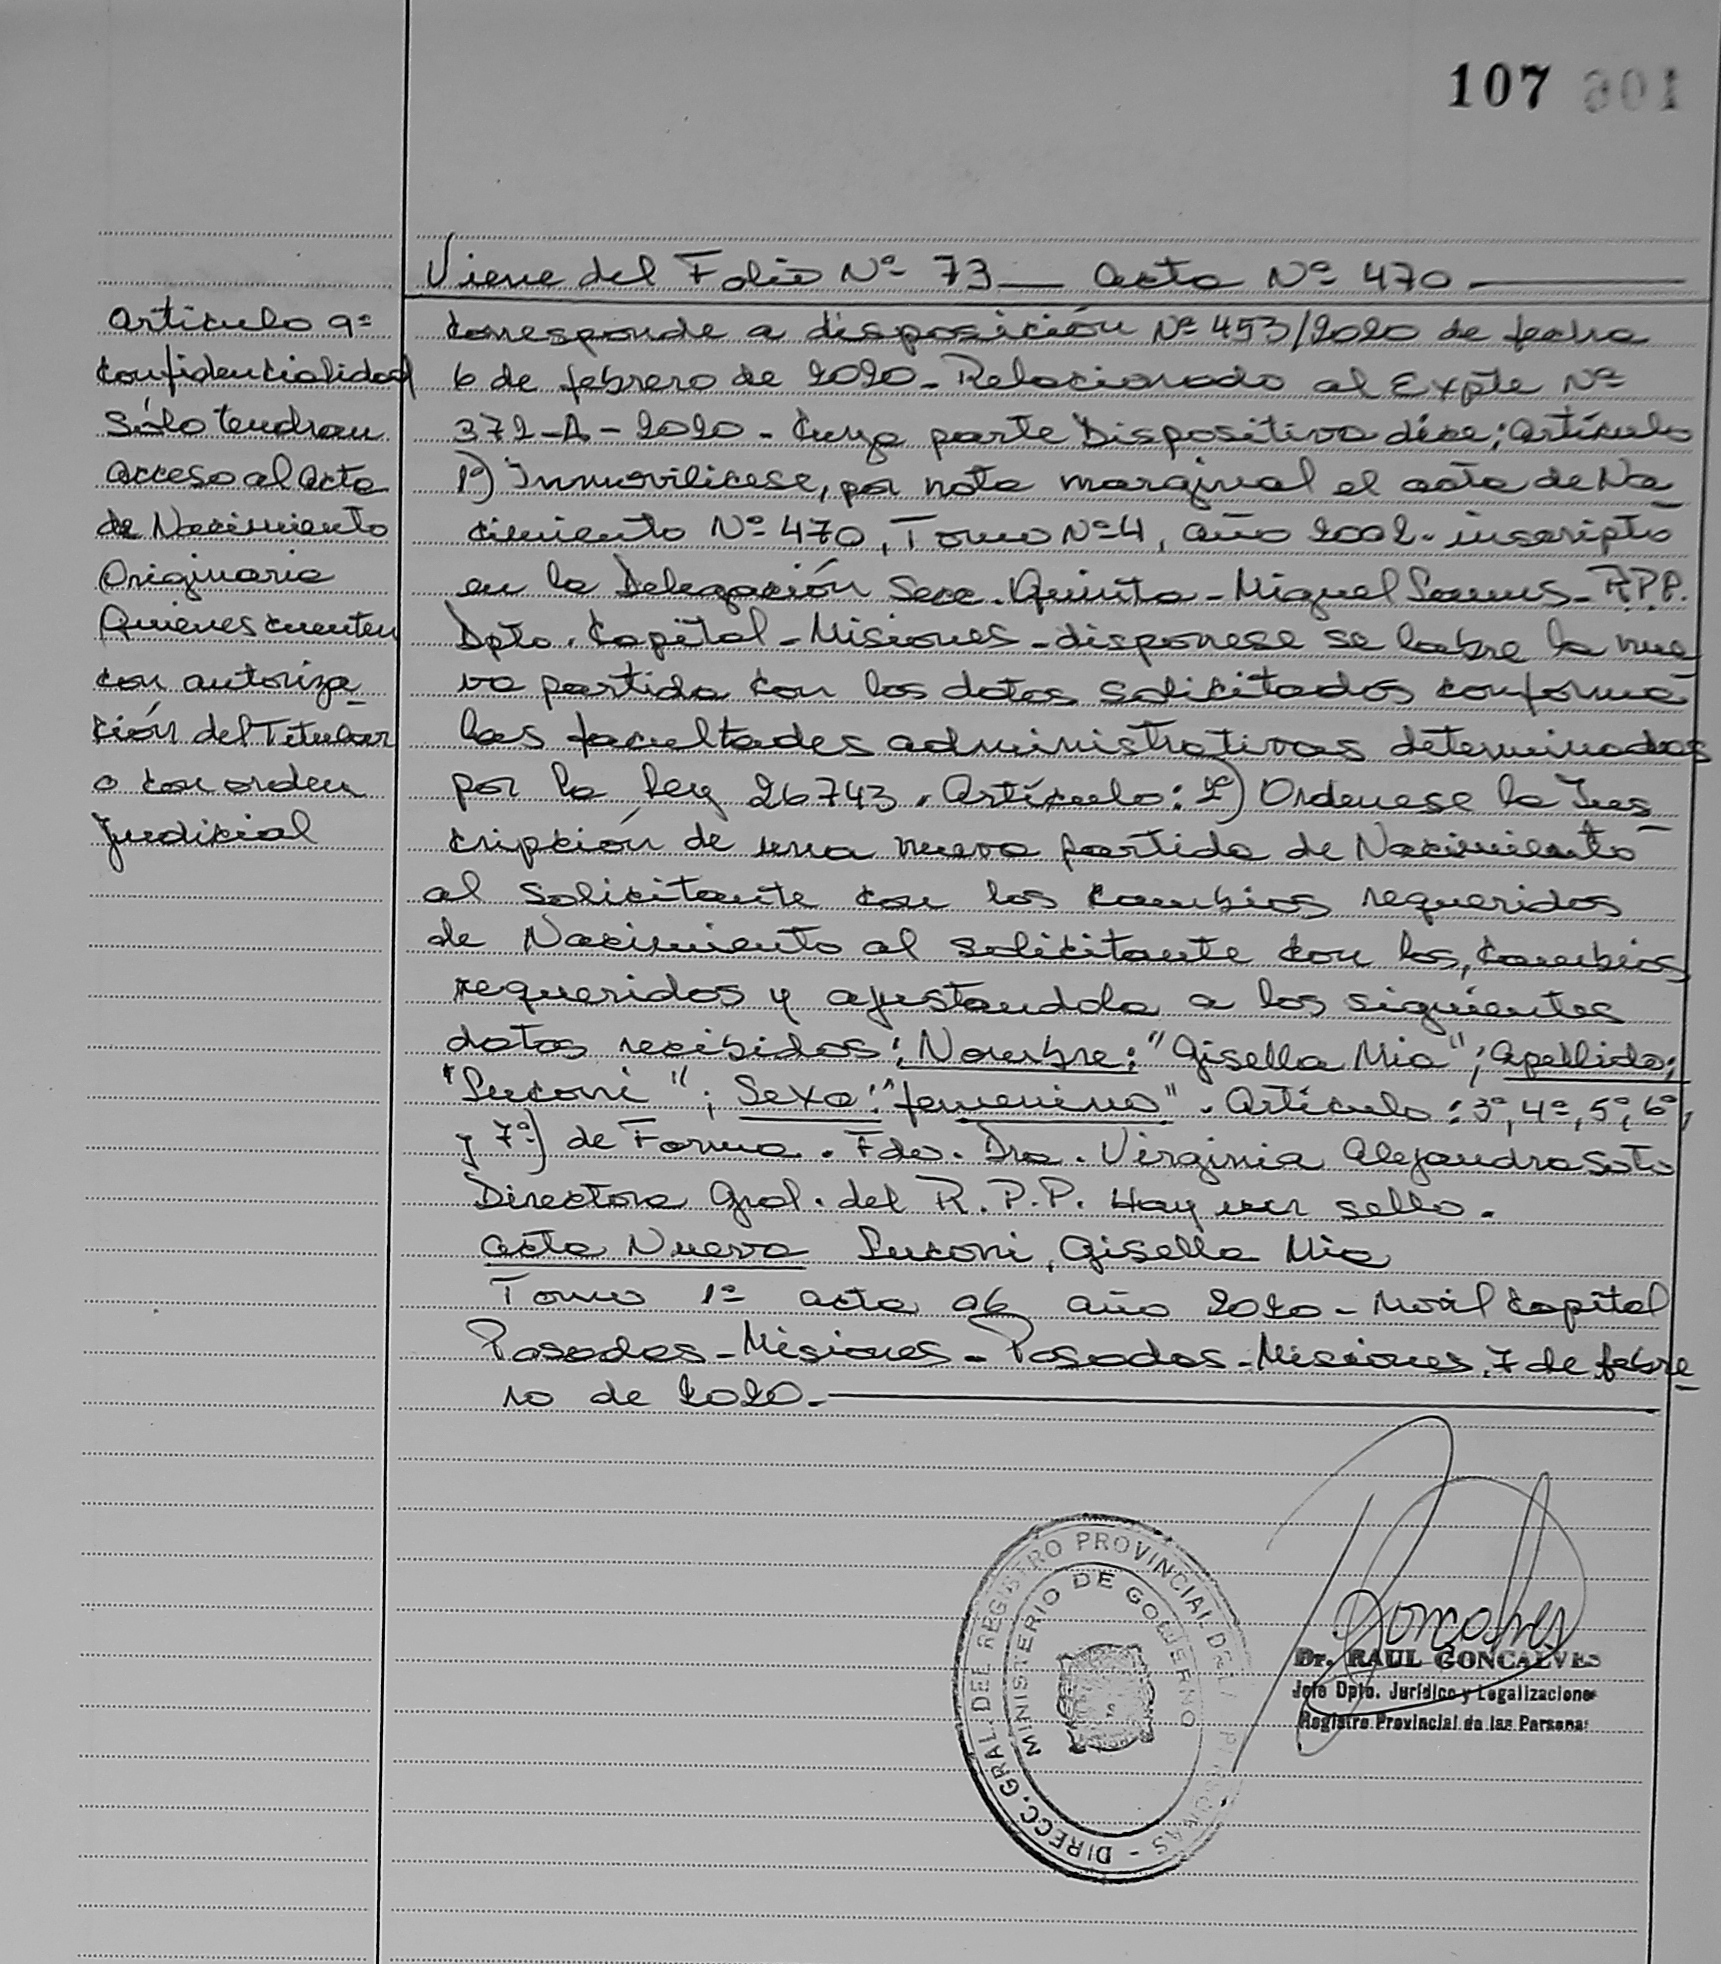 107 601
Viene del Folio Nº 73 — Acta Nº 470 —
Artículo 9º
confidencialidad
Sólo tendran
acceso al acta
de Nacimiento
Originaria
Quienes cuenten
con autoriza_
ción del Titular
o con orden
Judicial
Corresponde a disposición Nº 453/2020 de fecha
6 de febrero de 2020 - Relacionado al Expte Nº
372-A-2020 - Cuya parte Dispositiva dice; Artículo
1º) Inmovilicese, por nota marginal el acta de Na_
cimiento Nº 470, Tomo Nº 4, año 2002 - inscripto
en la Delegación Secc. Quinta - Miguel Lanus - R.P.P.
Dpto. Capital - Misiones - disponese se labre la nue
va partida con los datos solicitados conforme
las facultades administrativas determinadas
por la Ley 26743. Artículo: 2º) Ordenese la Ins_
cripción de una nueva partida de Nacimiento
al solicitante con los cambios requeridos
de Nacimiento al solicitante con los, cambios
requeridos y ajustandola a los siguientes
datos recibidos: Nombre: "Gisella Mia"; Apellido:
"Suconi"; Sexo: "femenino". Artículo: 3º, 4º, 5º, 6º,
y 7º) de Forma. Fdo. Dra. Virginia Alejandra Soto
Directora Gral. del R.P.P. Hay un sello.
Acta Nueva Suconi, Gisella Mia
Tomo 1º acta 06 año 2020 - Movil Capital
Posadas - Misiones - Posadas - Misiones, 7 de febre_
ro de 2020. —
DIRECC. GRAL. DE REGISTRO PROVINCIAL DE LAS PERSONAS -
MINISTERIO DE GOBIERNO
Goncalves
Dr. RAUL GONCALVES
Jefe Dpto. Jurídico y Legalizaciones
Registro Provincial de las Personas